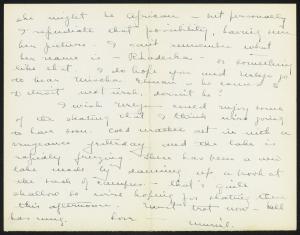 she might be African — but personally
I repudiate that possibility, having seen
her picture. I can't remember what
her name is — Rhodeska — or something
like that. I do hope you and
to hear Mischa Elman — he comes to
Detroit next week, doesn't he?
I wish you could enjoy some
of the skating that I think we're going
to have soon. Cold weather set in with a
vengeance yesterday and the lake is
rapidly freezing. There has been a new
lake made by damming up a brook at
the back of campus — that's quite
shallow so we're hoping for skating there
this afternoon. Must trot now — bell
has rung. Love — Muriel.